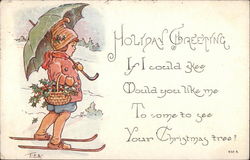 HOLIDAY GREETING
If I could skee
Would you like me
To come to see
Your Christmas tree!